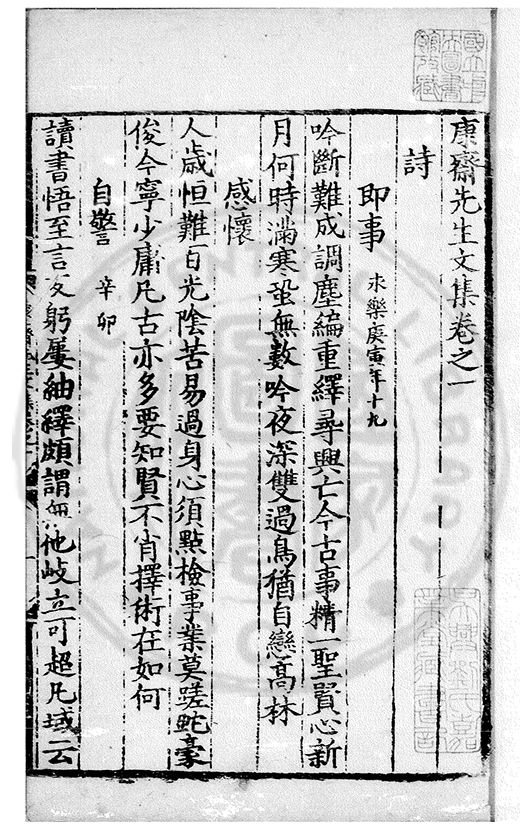 康齋先生文集卷之一
詩
即事 永樂庚寅年十九
吟斷難成調塵編重繹尋興亡今古事精一聖賢心新
月何時滿寒蛩無數吟夜深雙過鳥猶自戀高林
感懷
人歲恒難百光陰苦易過身心須點檢事業莫蹉跎豪
俊今寧少庸凡古亦多要知賢不肖擇術在如何
自警 辛卯
讀書悟至言反躬屢紬繹頗謂無他岐立可超凡域云